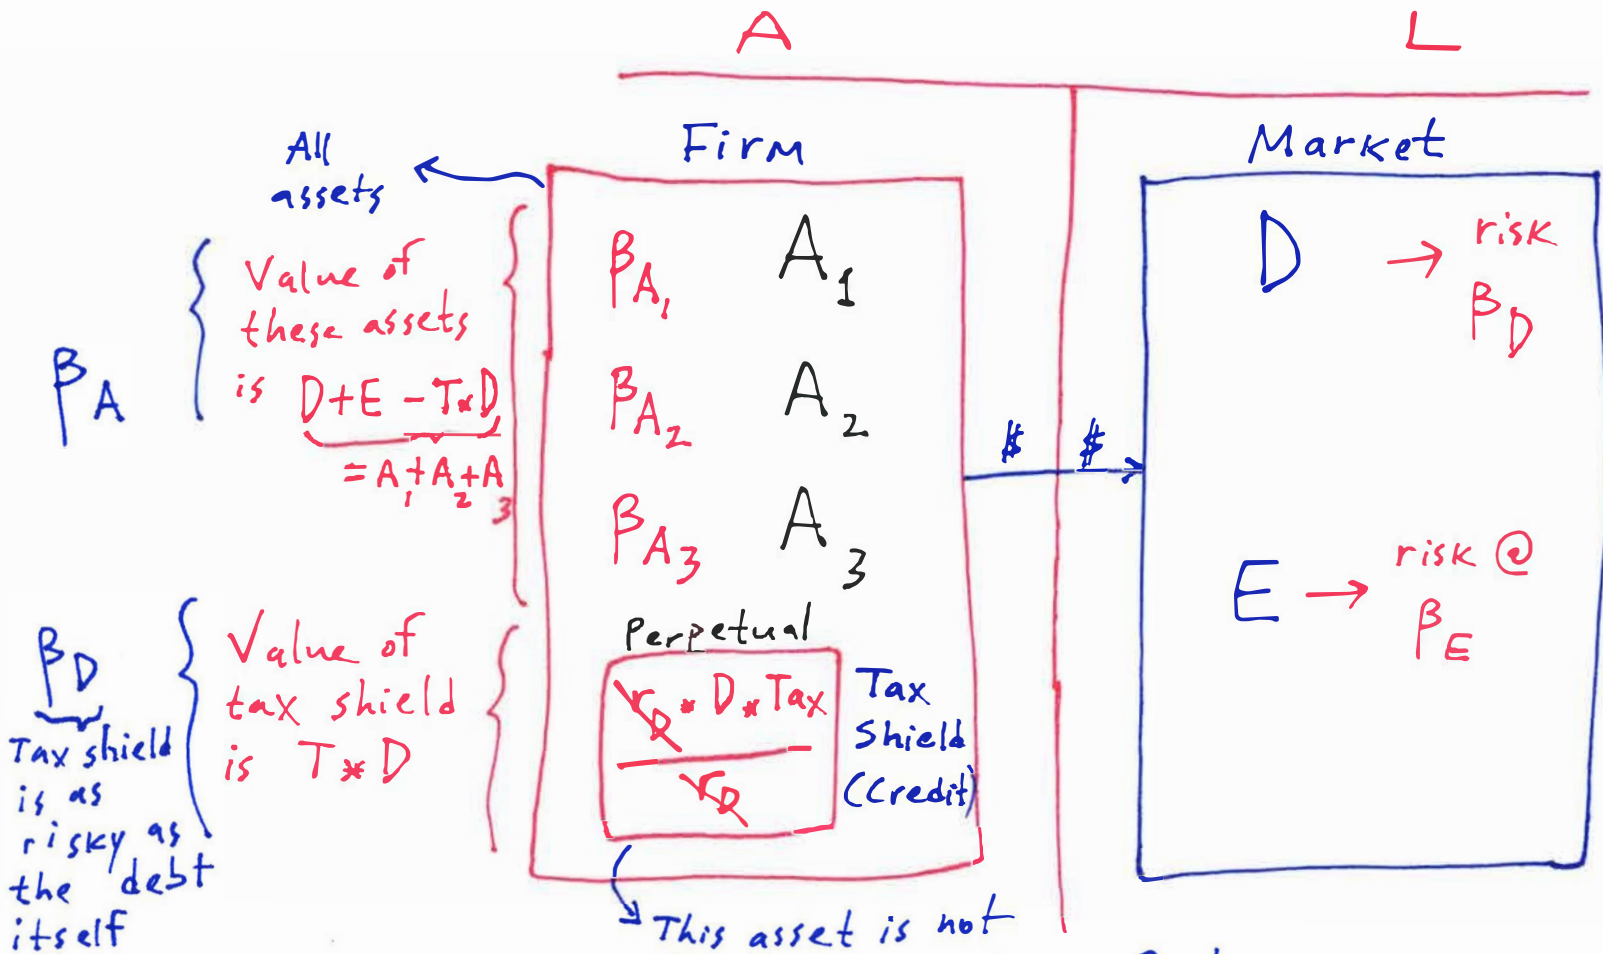 A
L
Firm
Market
All
assets
β_A
Value of
these assets
is D+E - T*D
= A_1 + A_2 + A_3
β_A_1 A_1
β_A_2 A_2
β_A_3 A_3
D → risk
β_D
$ $
E → risk @
β_E
β_D
Tax shield
is as
risky as
the debt
itself
Value of
tax shield
is T*D
Perpetual
r_D * D * Tax
r_D
Tax
Shield
(Credit)
This asset is not